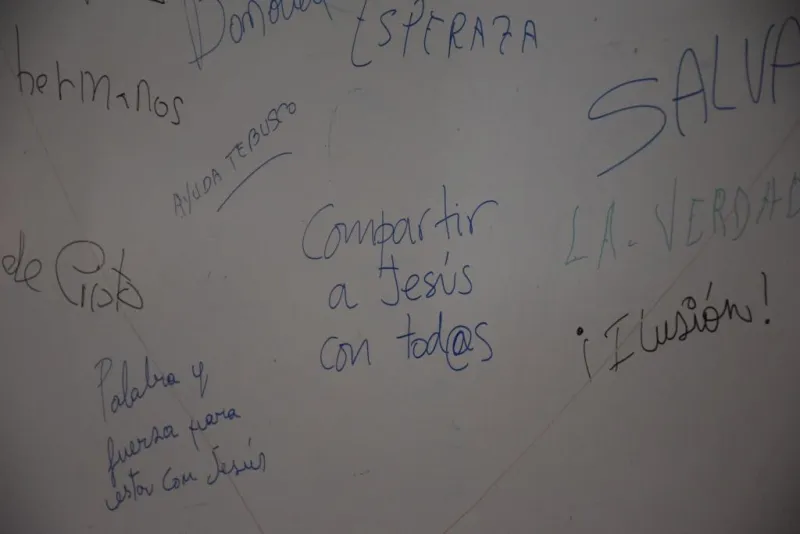 ESPERAZA
hermanos
SALVA
AYUDA TE BUSCO
Compartir
a Jesús
con tod@s
LA. VERDAD
de
¡Ilusión!
Palabra y
fuerza para
estar con Jesús